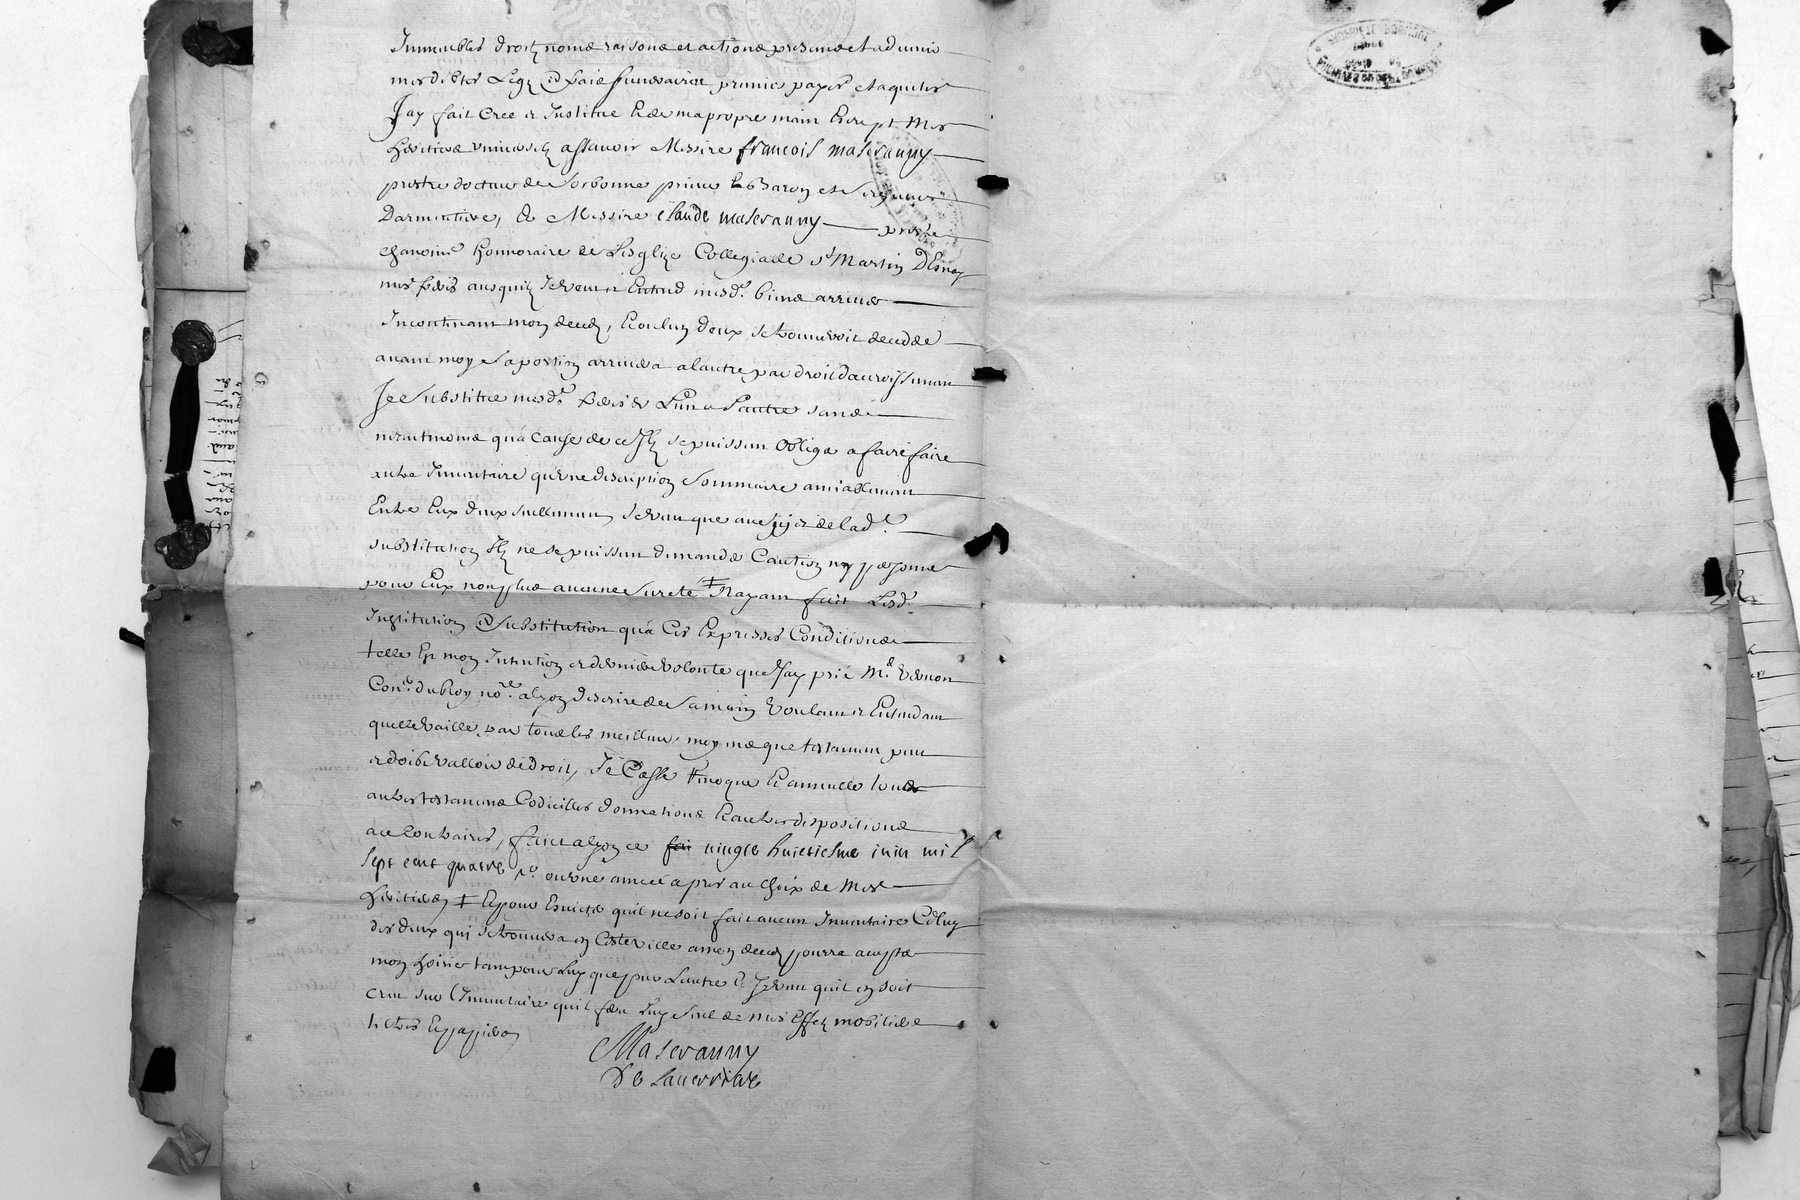 Immeubles droitz noms raisons et actions presens et advenir
mes debtes Legz et frais funeraires premier payes et aquites
Jay fait cree et Institue Et de ma propre main Escript Mes
heritiers universelz assavoir Messire francois maseranny
prestre docteur de Sorbonne prieur Et Baron et Seigneur
Darmentive, Et Messire claude maseranny prestre
chanoine honnoraire de Lesglize Collegialle St Martin DEsnay
mes freres ausquelz Je veux et Entend mesd. biens arriver
Incontinant mon decedz, Et ou lun deux se trouveroit decedde
avant moy Sa portion arrivera a lautre par droit dacroissement
Je Substitue mesd. freres de Lun a Lautre sans
neantmoins qua cause de ce Ilz se puissent obliger a faire faire
autre Inventaire quune description Sommaire amiablement
Entre Eux deux seullement, Je veux que au sujet de lad.
substitution Ilz ne se puissent demander Caution ny personne
pour Eux non plus aucune Sureté ‡ Nayant fait Lesd.
Institution et Substitution qua Ces Expresses Conditions
telle Est mon Intention et derniere volonte que Jay prié Mr. vernon
Conr. du Roy nore. a lyon descrire de Sa main voulant et Entendant
quelle vaille par tous les meilleurs moyens que testament peut
et doibt valloir de droit, Je Casse Revoque Et annulle tous
autres testamens Codicilles donnations Et autres dispositions
au Contraires, fait a lyon ce fai vingts huictiesme iuin mil
sept cent quatre ro ou une année apres au choix de Mes
heritiers ‡ Et pour Eviter quil ne soit fait aucun Inventaire Celuy
des deux qui se trouvera en Cette ville a mon decedz pourra accepter
mon hoirie tant pour Luy que pour Lautre Et Je veux quil en soit
creu sur lInventaire quil fera Luy Seul de mes Effetz mobiliers
tiltres Et papiers
Maseranny
De Laverriere